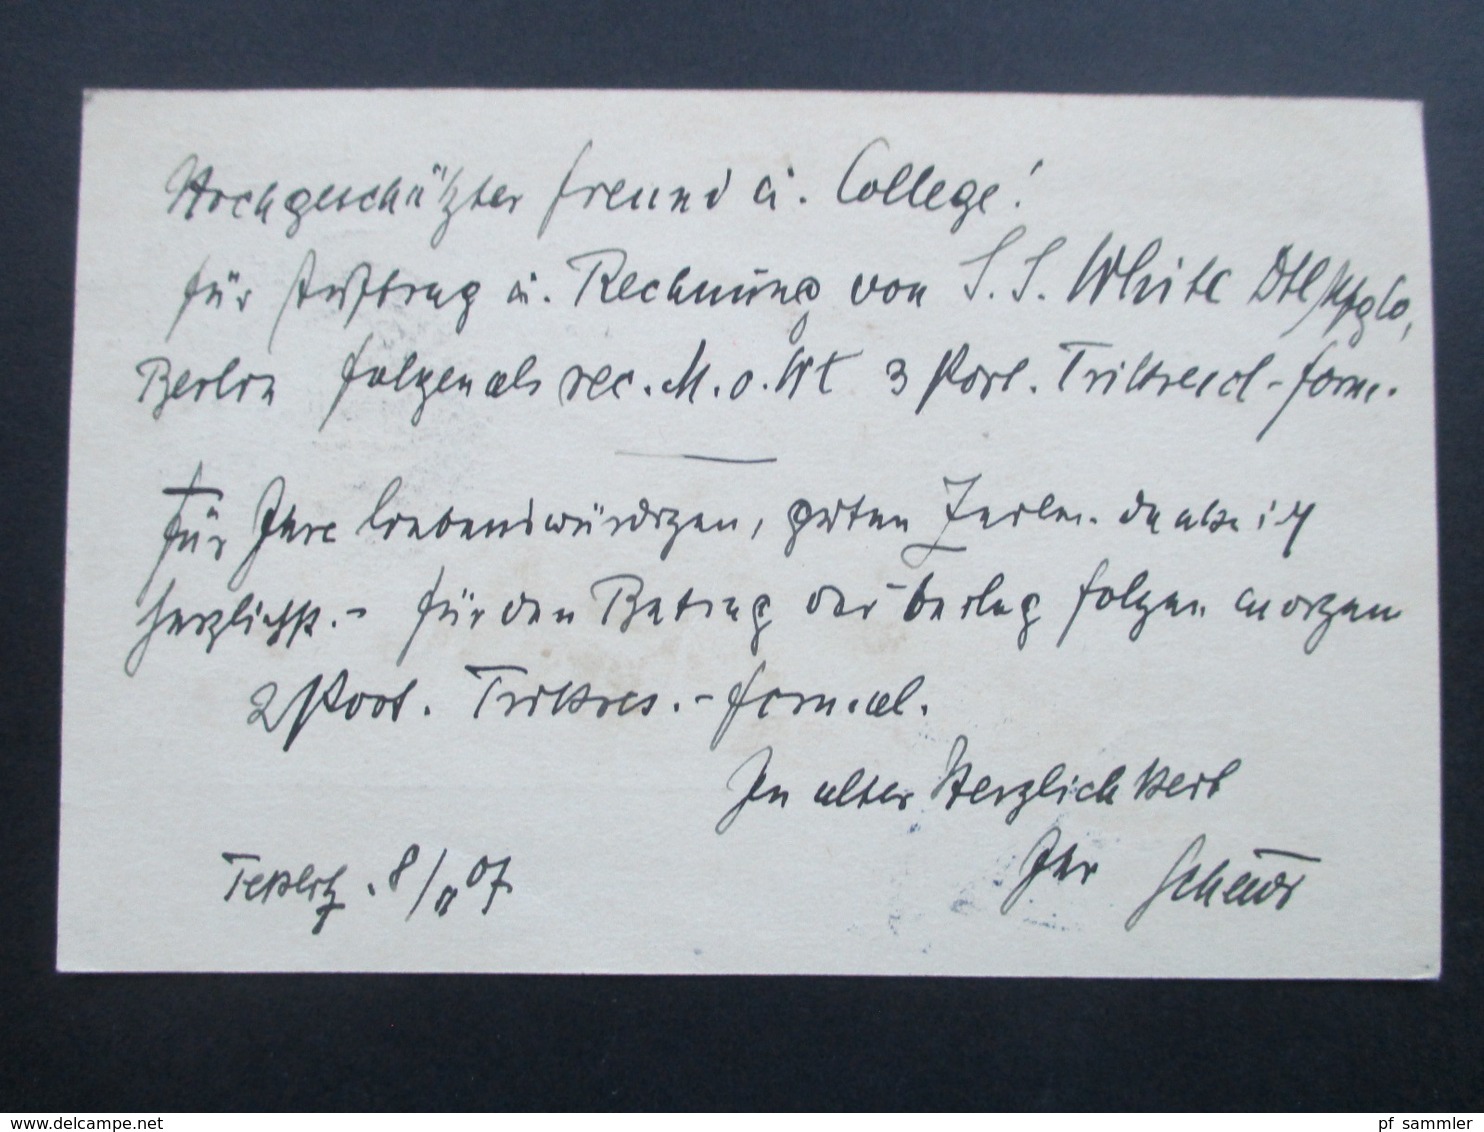 Hochgeschätzter Freund u. College!
Für Auftrag u. Rechnung von S. S. White Dtl Mfg Co,
Berlin folgen als rec. M. o. Wt 3 Port. Trikresol-form.
Für Ihre liebenswürdigen, guten Zeilen danke ich
herzlichst. - Für den Betrag der folgen morgen
2 Port. Trikres. - formal.
In alter Herzlichkeit
Ihr Scheuer
Teplitz. 8/II 07.
pf sammler
www.delcampe.net